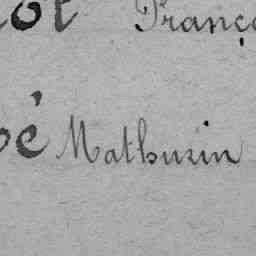 ot Franç
é Mathurin